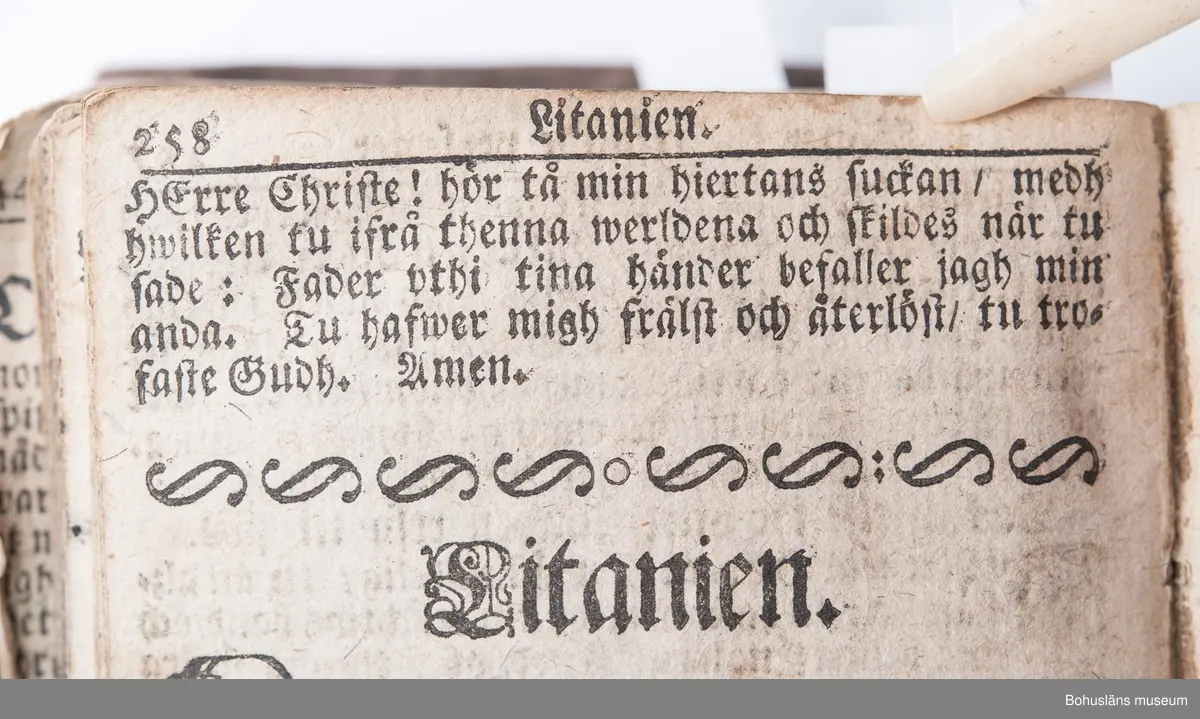 258 Litanien.
HErre Christe! hör tå min hiertans suckan / medh
hwilken tu ifrå thenna werldena och skildes när tu
sade : Fader vthi tina händer befaller jagh min
anda. Tu hafwer migh frälst och återlöst/ tu tro-
faste Gudh. Amen.
Litanien.
Bohusläns museum